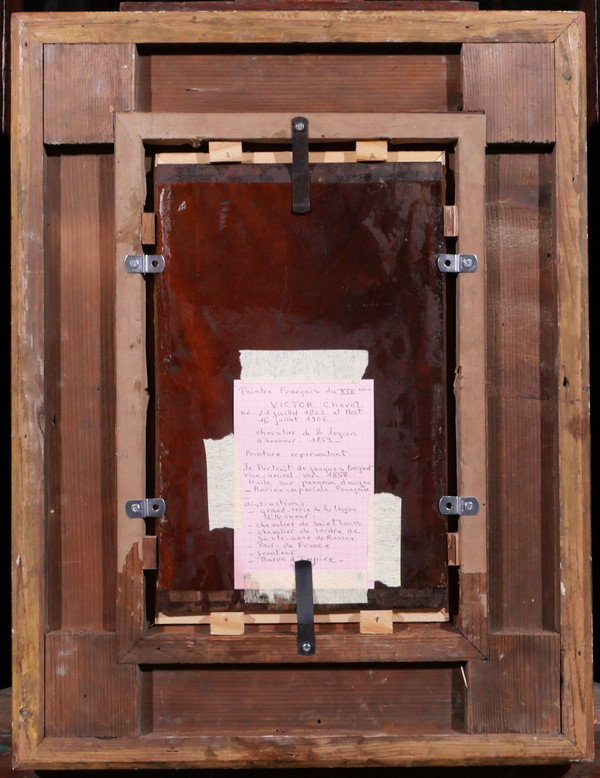 Peintre Français du XIX ème
VICTOR Chavet.
né. 21 juillet 1822 et Mort.
16 juillet 1906
chevalier de la legion
d'honneur. 1859 -
Peinture representant
le Portrait de jacques
vice-amiral. vers 1858
Huile sur panneau d'acajou
- Marine imperiale Française
distinctions
- grand-croix de la legion
d'Honneur.
- chevalier de Saint Louis
- chevalier de lordre de
Sainte-anne de Russie
- Pair-de France
- Senateur
- Baron d'Empire -